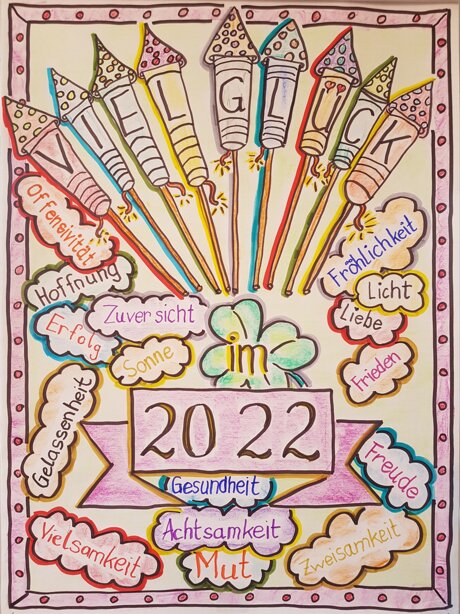 VIEL GLÜCK
Offensivität
Hoffnung
Zuversicht
Erfolg
Sonne
Fröhlichkeit
Licht
Liebe
Frieden
im
2022
Gelassenheit
Gesundheit
Freude
Vielsamkeit
Achtsamkeit
Mut
Zweisamkeit